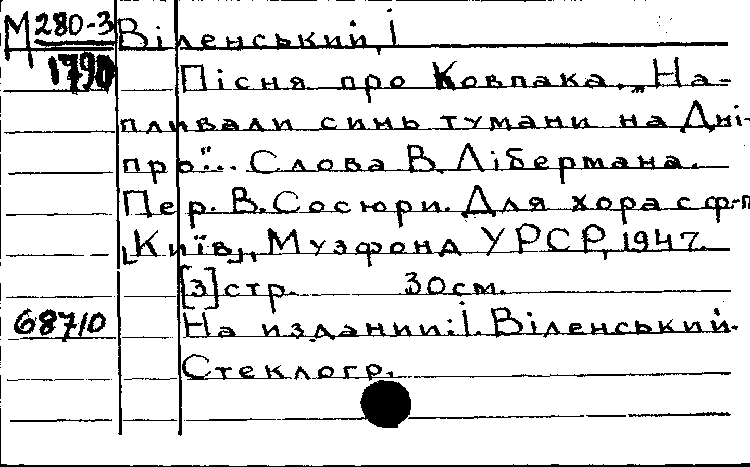 М 280-3 Віленський, І
1790 Пісня про Ковпака. „На-
пливали синь тумани на Дні-
про"... Слова В. Лібермана.
Пер. В. Сосюри. Для хора с ф-п
[Київ], Музфонд УРСР, 1947.
[3] стр. 30 см.
68710 На издании: І. Віленський.
Стеклогр.